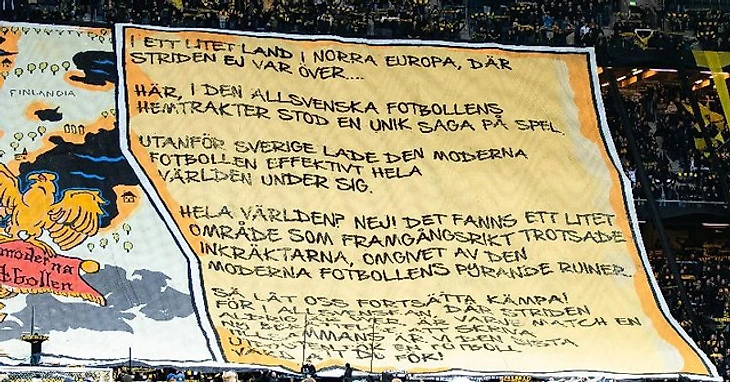 I ETT LITET LAND I NORRA EUROPA, DÄR
STRIDEN EJ VAR ÖVER....
HÄR, I DEN ALLSVENSKA FOTBOLLENS
HEMTRAKTER STOD EN UNIK SAGA PÅ SPEL.
UTANFÖR SVERIGE LADE DEN MODERNA
FOTBOLLEN EFFEKTIVT HELA
VÄRLDEN UNDER SIG.
HELA VÄRLDEN? NEJ! DET FANNS ETT LITET
OMRÅDE SOM FRAMGÅNGSRIKT TROTSADE
INKRÄKTARNA, OMGIVET AV DEN
MODERNA FOTBOLLENS PYRANDE RUINER.
SÅ LÅT OSS FORTSÄTTA KÄMPA!
FÖR I ALLSVENSKAN, DÄR STRIDEN
ÄR VARJE MATCH EN
NY
ÄR VI DEN SISTA
FOTBOLL
FINLANDIA
moderna